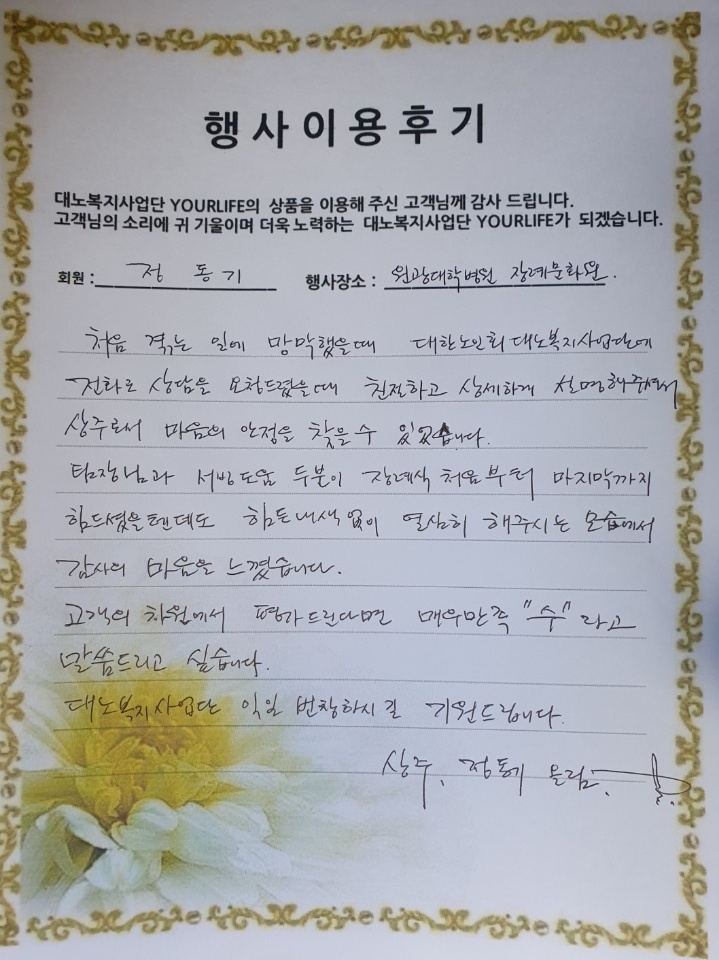 행사이용후기
대노복지사업단 YOURLIFE의 상품을 이용해 주신 고객님께 감사 드립니다.
고객님의 소리에 귀 기울이며 더욱 노력하는 대노복지사업단 YOURLIFE가 되겠습니다.
회원 : 정 동 기 행사장소 : 원광대학병원 장례문화원.
처음 겪는 일에 망막했을때 대한노인회 대노복지사업단에
전화로 상담을 요청드렸을때 친절하고 상세하게 설명해주셔서
상주로서 마음의 안정을 찾을수 있었습니다.
팀장님과 서빙도움 두분이 장례식 처음부터 마지막까지
힘드셨을텐데도 힘든내색 없이 열심히 해주시는 모습에서
감사의 마음을 느꼈습니다.
고객의 차원에서 평가드린다면 매우만족 "수" 라고
말씀드리고 싶습니다.
대노복지사업단 익일 번창하시길 기원드립니다.
상주, 정동기 올림.